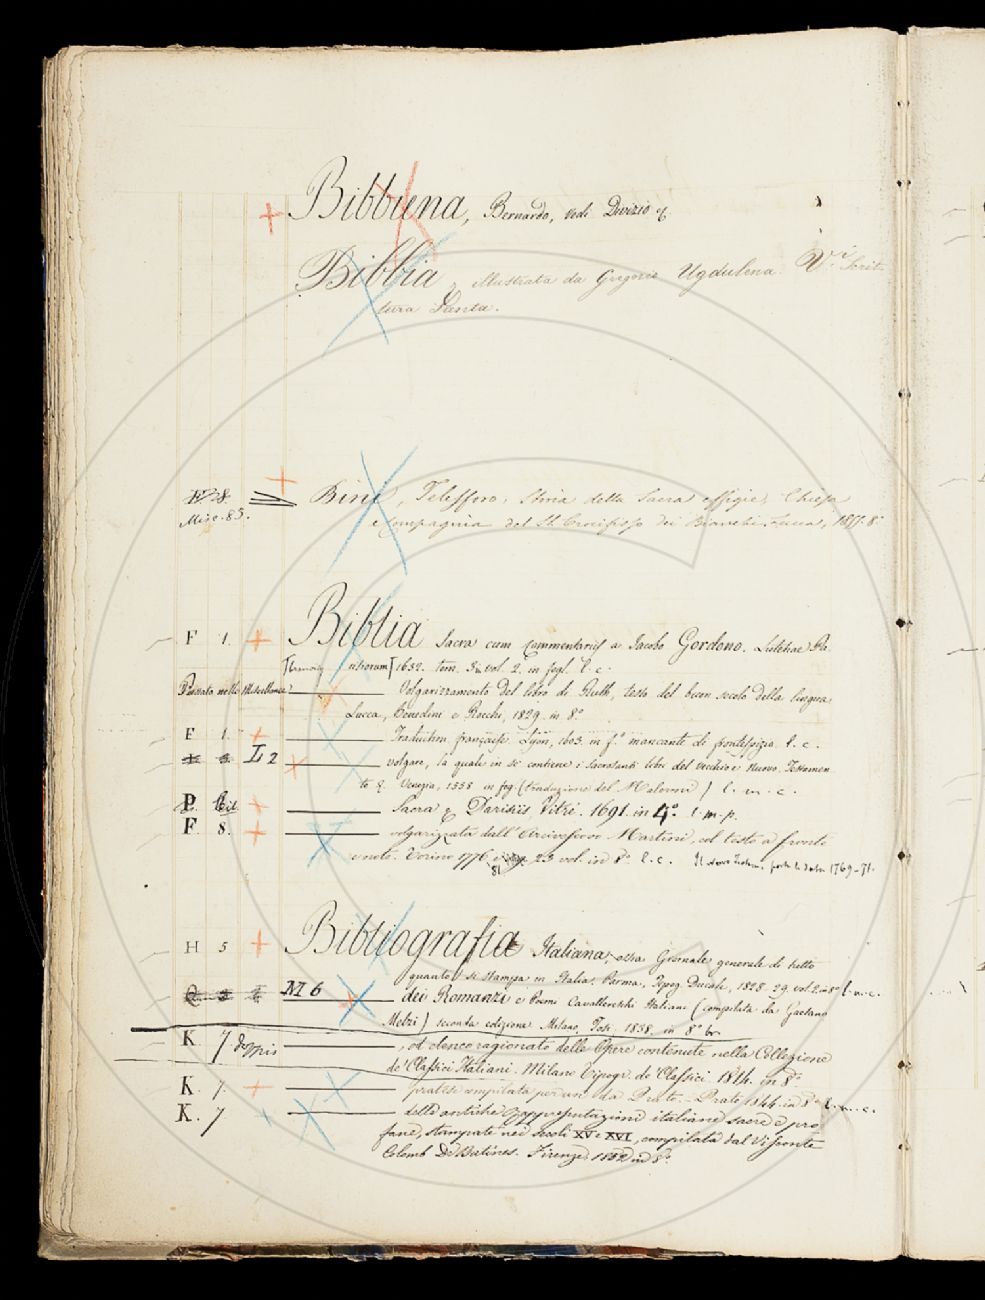 Bibbiena, Bernardo, vedi Divizio
Bibbia illustrata da Gregorio Ugdulena. V. Scrit-
tura Santa.
Misc. 83. Bini, Telesforo, Storia della Sacra effigie, Chiesa
e compagnia del SS. Crocifisso dei Bianchi. Lucca, 18 8°
F 1. Biblia Sacra cum commentariis a Jacobo Gordono. Lutetiae Pa-
risiorum 1632. tom. 3 vol. 2 in fogl. l. c.
Passato nelle Miscellanee Volgarizzamento del libro di Ruth, testo del buon secolo della lingua
Lucca, Benedini e Rocchi, 1829. in 8°
F 1. Traduction française. Lyon, 1603. in f.° mancante di frontespizio. l. c.
L 2 volgare, la quale in se contiene i sacrosanti libri del vecchio e nuovo Testamen-
to Venezia, 1538 in fog. (traduzione del Malermi) l. m. c.
P. Sacra Parisiis, Vitré. 1691. in 4° l. m. p.
F. 8. volgarizzata dall' Arcivescovo Martini, col testo a fronte
e note. Torino 1776 81 23 vol. in 8° l. c. Il nuovo Testam. porta la data 1769-71.
H 5 Bibliografia Italiana, ossia Giornale generale di tutto
quanto si stampa in Italia. Parma, Tipog. Ducale, 1828. 29. vol. 2 in 8° l. m. c.
M 6 dei Romanzi e Poemi Cavallereschi Italiani (compilata da Gaetano
Melzi) seconda edizione Milano, Tosi, 1838. in 8° br.
K 7 doppio, od elenco ragionato delle Opere contenute nella Collezione
de' Classici Italiani. Milano Tipogr. de' Classici. 1814. in 8°
K. 7. pratese compilata per un da Prato. - Prato 1844. in 8° l. m. c.
K. 7 delle antiche rappresentazioni italiane sacre e pro-
fane, stampate nei secoli XV e XVI, compilata dal Visconte
Colomb De Batines. Firenze, 1852 in 8°.